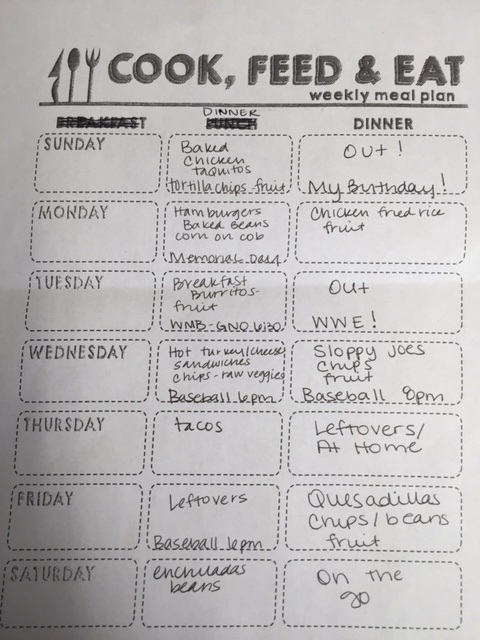 COOK, FEED & EAT
weekly meal plan
DINNER
BREAKFAST LUNCH DINNER
SUNDAY
Baked
Chicken
taquitos
tortilla chips-fruit
Out!
My Birthday!
MONDAY
Hamburgers
Baked Beans
corn on cob
Memorial Day
Chicken fried rice
fruit
TUESDAY
Breakfast
Burritos-
fruit
WMB-GNO 6:30
Out
WWE!
WEDNESDAY
Hot turkey/cheese
sandwiches
chips-raw veggies
Baseball 6pm
Sloppy Joes
chips
fruit
Baseball 8pm
THURSDAY
tacos
Leftovers/
At Home
FRIDAY
Leftovers
Baseball 6pm
Quesadillas
Chips/beans
fruit
SATURDAY
enchiladas
beans
On the
go